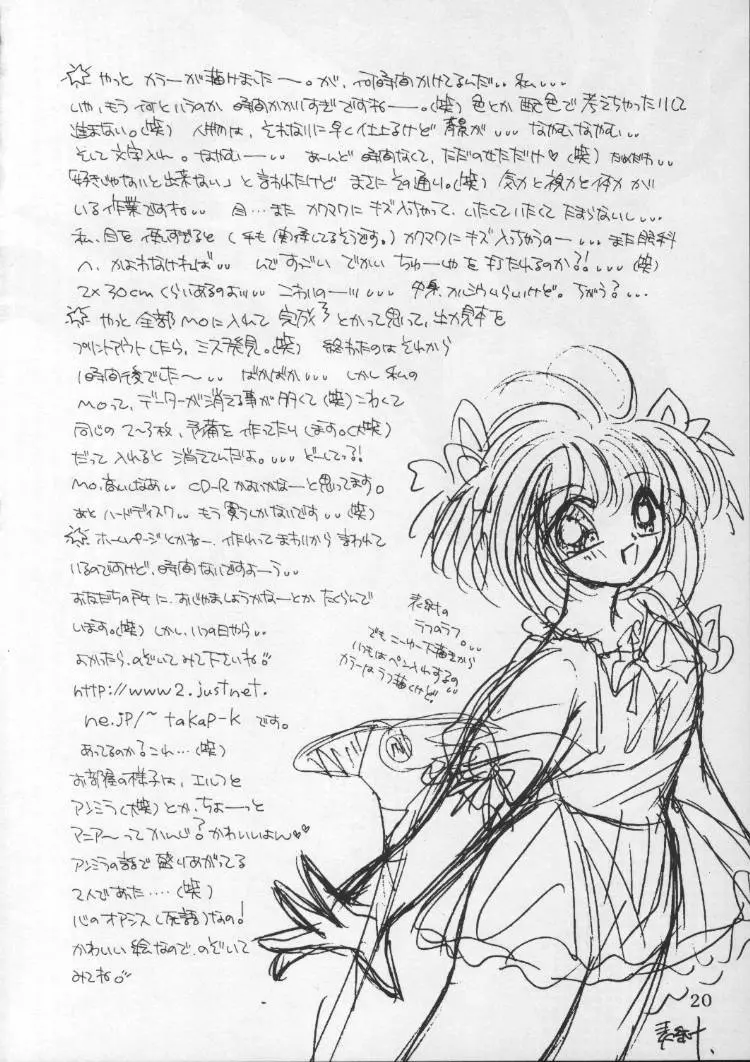 ☆やっと カラーが描けました〜。が、何時間かけてるんだ、、私、、、
いや、もう 何というのか 時間かかりすぎですねー。(笑) 色とか 配色で 考えちゃったりして
進まない。(笑) 人物は、それなりに早く仕上るけど 背景が、、、 なやむなやむ、、
そして文字入れ。なやむー、、 あーんど 時間なくて、ただのせただけ♡(笑) だめだわ、、
「好きじゃないと出来ない」と言われたけど まさにその通り。(笑) 気力と視力と体力が
いる作業ですね、、 目…また カクマクに キズ入っちゃって、いたくていたくて たまらないし、、、
私、目を 使いすぎると ( も関係してるそうです。) カクマクに キズ入っちゃうのー、、、また眼科
へ、かよわなければ、、 んで すっごい でかい ちゅーしゃを 打たれるのか?!、、、(笑)
2×30cmくらいあるのよ、、、 こわいのー、、、 ちがう?、、、
☆やっと 全部 MOに入れて 完成? とかって思って、出力見本を
プリントアウトしたら、ミス発見。(笑) 終わったのは それから
1時間後でした〜、、 ばかばか、、、 しかし 私の
MOって、データーが消える事が多くて(笑)こわくて
同じの 2〜3枚、予備を 作ってたりします。(大笑)
だって 入れると 消えてんだよ。、、、どーしてっ?!
MO、高いしなぁ、、 CD-R かおうかなーと思ってます。
あと ハードディスク、、 もう 買うしかないです、、(笑)
☆ホームページとかねー、作れって まわりから 言われて
いるのですけど、時間ないですよーう、、
お友だちの所に、おじゃましようかなーとか たくらんで
います。(笑) しかし、いつの日やら、、
よかったら、のぞいて みて 下さいね
http://www2.justnet.
ne.jp/~takap-k です。
あってるのかな これ…(笑)
お部屋の様子は、エルフと
アンミラ(大笑)とか、ちょーっと
マニア〜って かんじ? かわいいよん♡♡
アンミラの話で 盛りあがってる
2人であった….(笑)
心のオアシス(死語)なの!
かわいい絵なので、のぞいて
みてね
表紙の
ラフのラフ。、、
でも こーゆー下描きから
いつもは ペン入れするの
カラーは ラフ 描くけど。、、
20